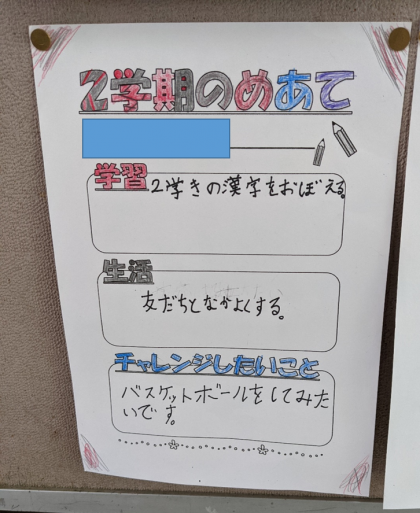 2学期のめあて
学習
2学きの漢字をおぼえる。
生活
友だちとなかよくする。
チャレンジしたいこと
バスケットボールをしてみた
いです。